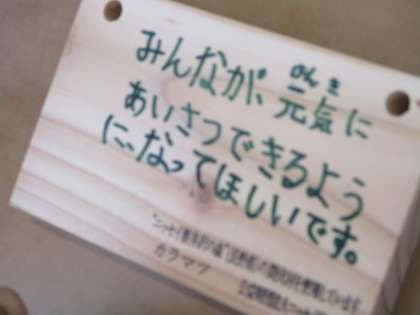 みんなが、元気に
げんき
あいさつできるよう
に、なってほしいです。
カラマツ